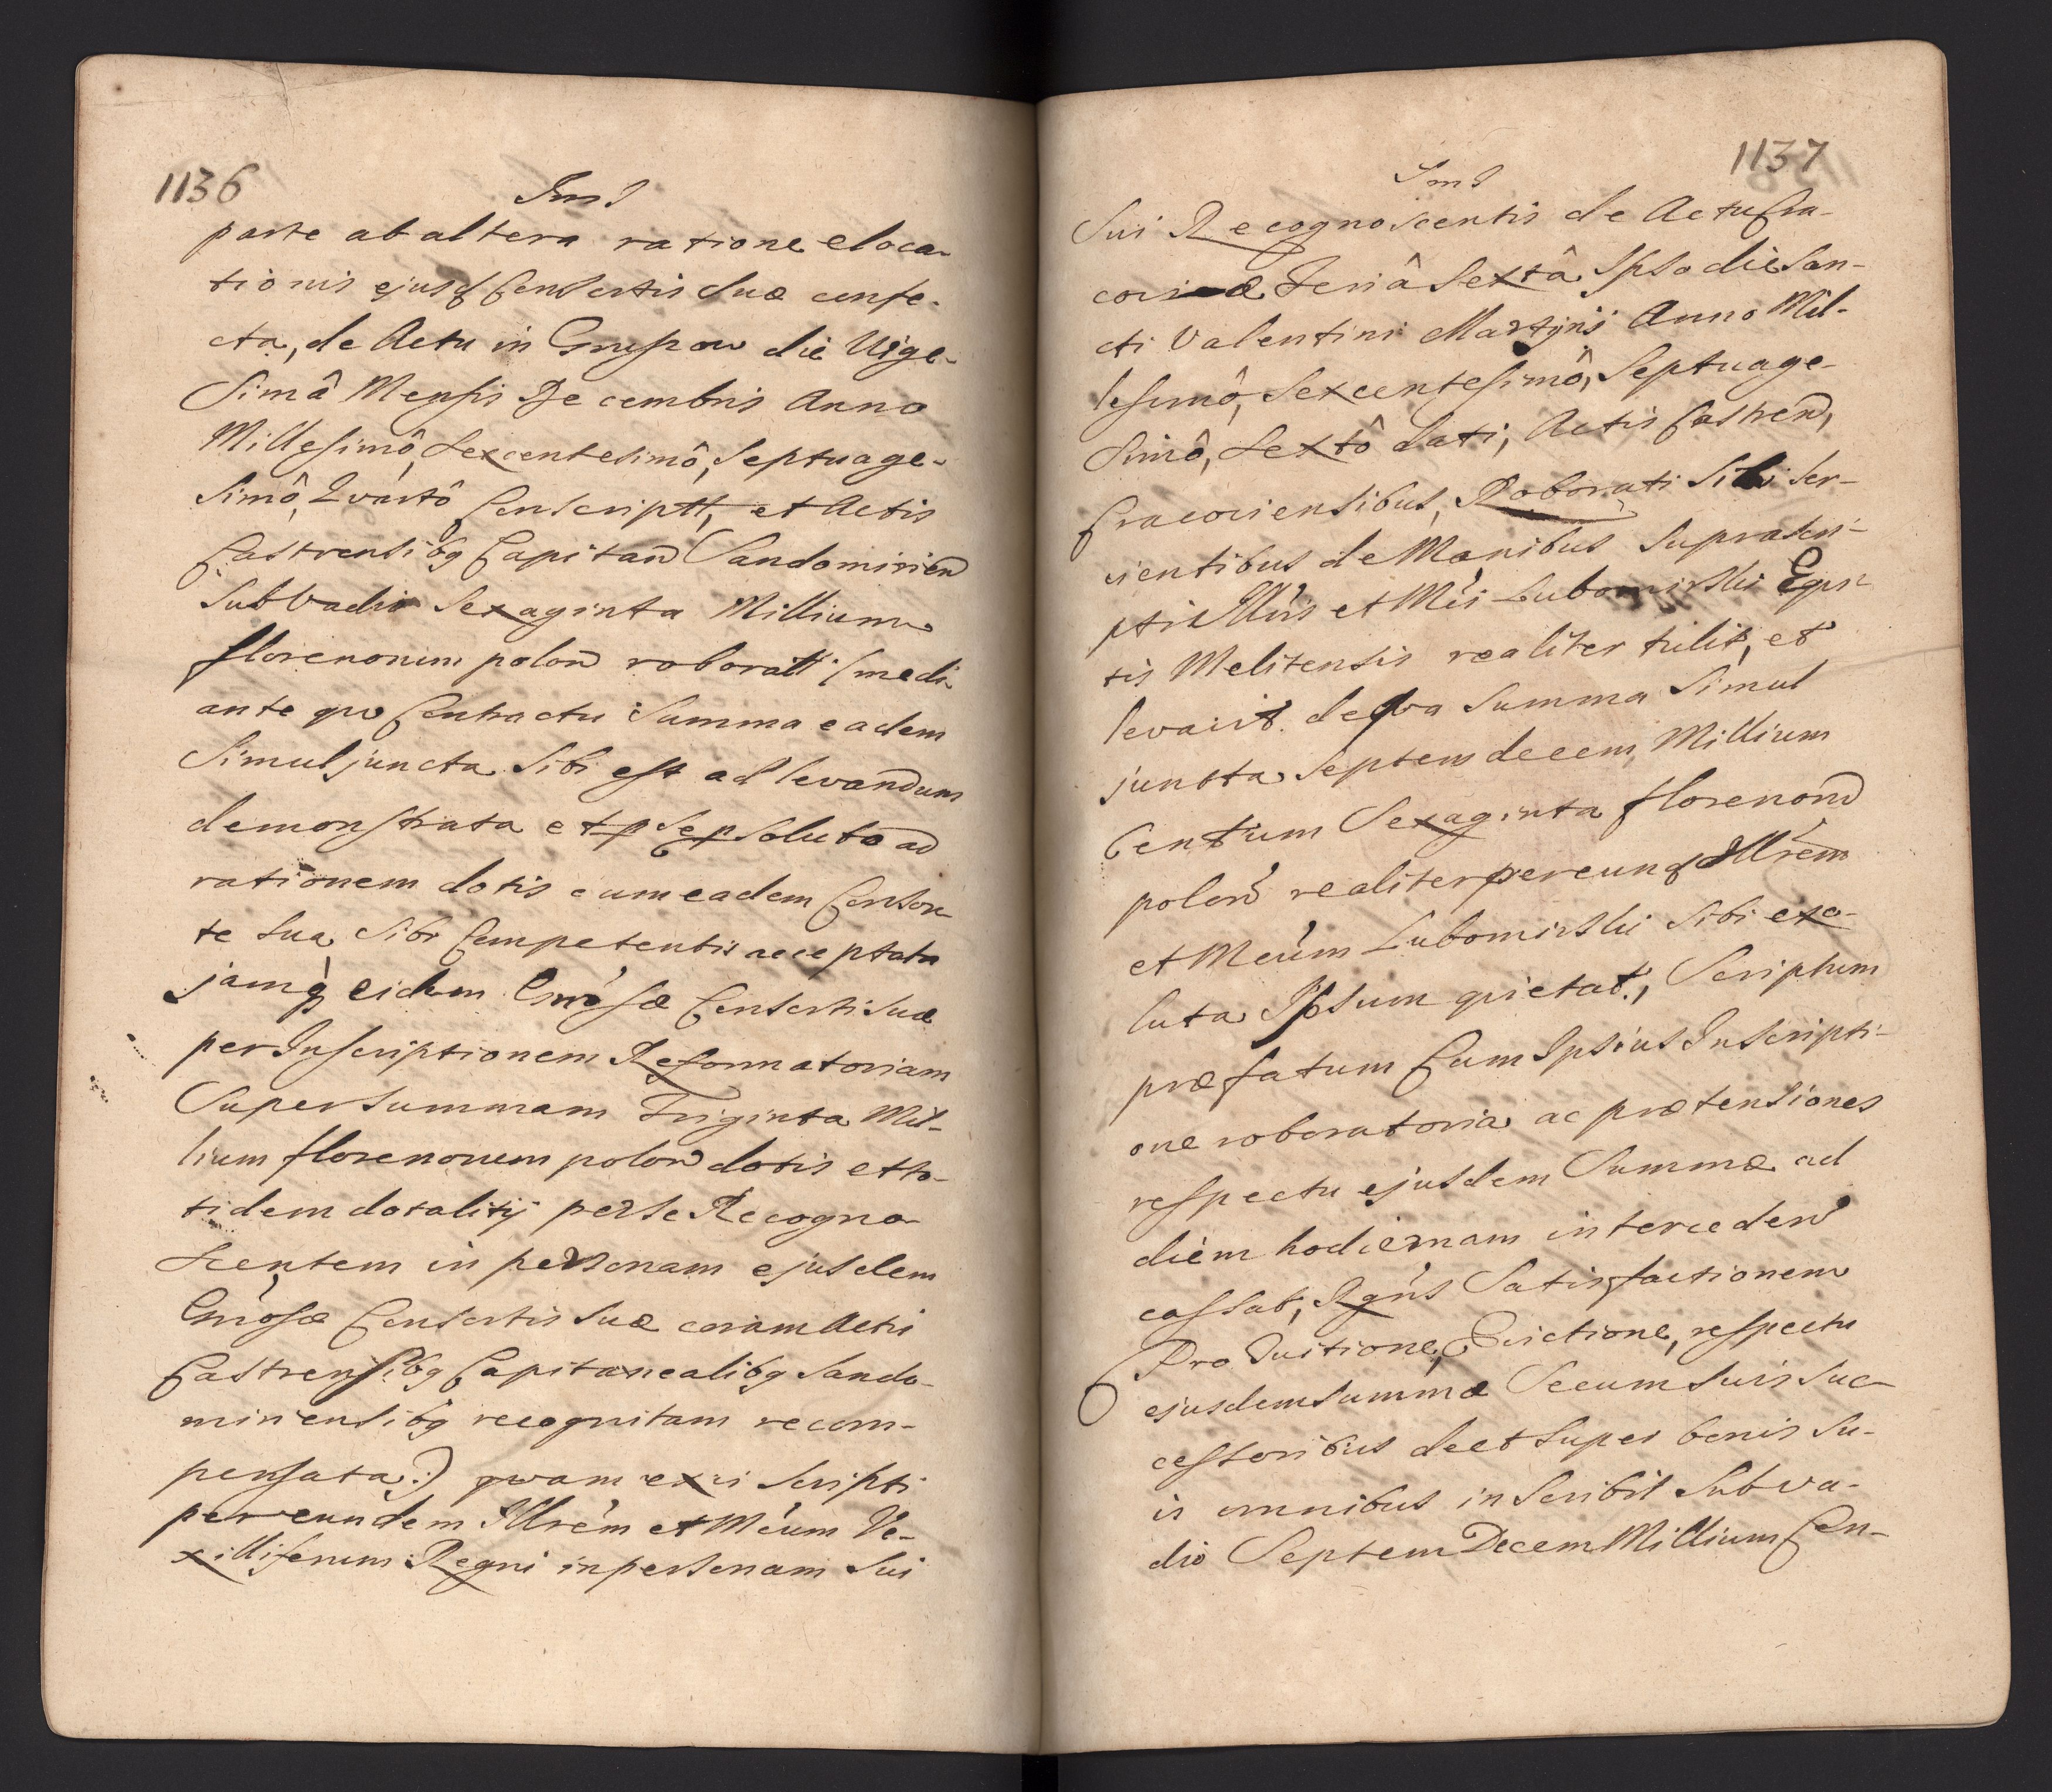 1136
parte ab altera ratione eloca-
tionis ejusq Consortis suæ confe-
cta, de Actu in Gruszow die Vige-
simâ Mensis Decembris Anno
Millesimô, Sexcentesimô, Septuage-
simô, Qvartô Conscriptt, et Actis
Castrensibq Capitan Sandomirien
sub vadio Sexaginta Millium
florenorum polon roboratt (medi-
ante qvo Contractu summa eadem
simul juncta sibi est ad levandum
demonstrata et p Se p soluta ad
rationem dotis cum eadem Conson-
te sua sibi Competentis acceptata
jamq eidem Gnrosæ Consorti suæ
per Inscriptionem Reformatoriam
super summam Triginta Mil-
lium florenorum polon dotis et to-
tidem dotalitij per se Recogno-
scentem in personam ejusdem
Gnrosæ Consortis suæ coram Actis
Castrensibq Capitanealibq Sando-
miriensibq recognitam recom-
pensata:) qvam ex vi scripti
per eundem Illrem et Mcum Ve-
xilliferum Regni in personam sui
1137
Sui Recognoscentis de Actu Cra-
coviæ Feriâ Sextâ Ipso die San-
cti Valentini Martyris Anno Mil-
lesimô, Sexcentesimô, Septuage-
simô, Sextô dati, Actis Castren,
Cracoviensibus, Roborati sibi ser-
vientibus de Manibus suprascri-
pti Illris et Mci Lubomirski Eqvi-
tis Melitensis realiter tulit, et
levavit. de qva summa simul
juncta Septemdecem Millium
Centum Sexaginta florenon
polon realiter per eunq Illrem
et Mcum Lubomirski sibi exo-
luta Ipsum qvietat., Scriptum
præfatum Cum Ipsius Inscripti-
one roboratoria ac prætensiones
respectu ejusdem Summæ ad
diem hodiernam interceden
cassat, Rgns Satisfactionem
Pro Tuitione, Evictione, respectu
ejusdem summæ Secum suis suc-
cessoribus de et super bonis su-
is omnibus inscribit sub va-
dio Septem Decem Millium Cen-